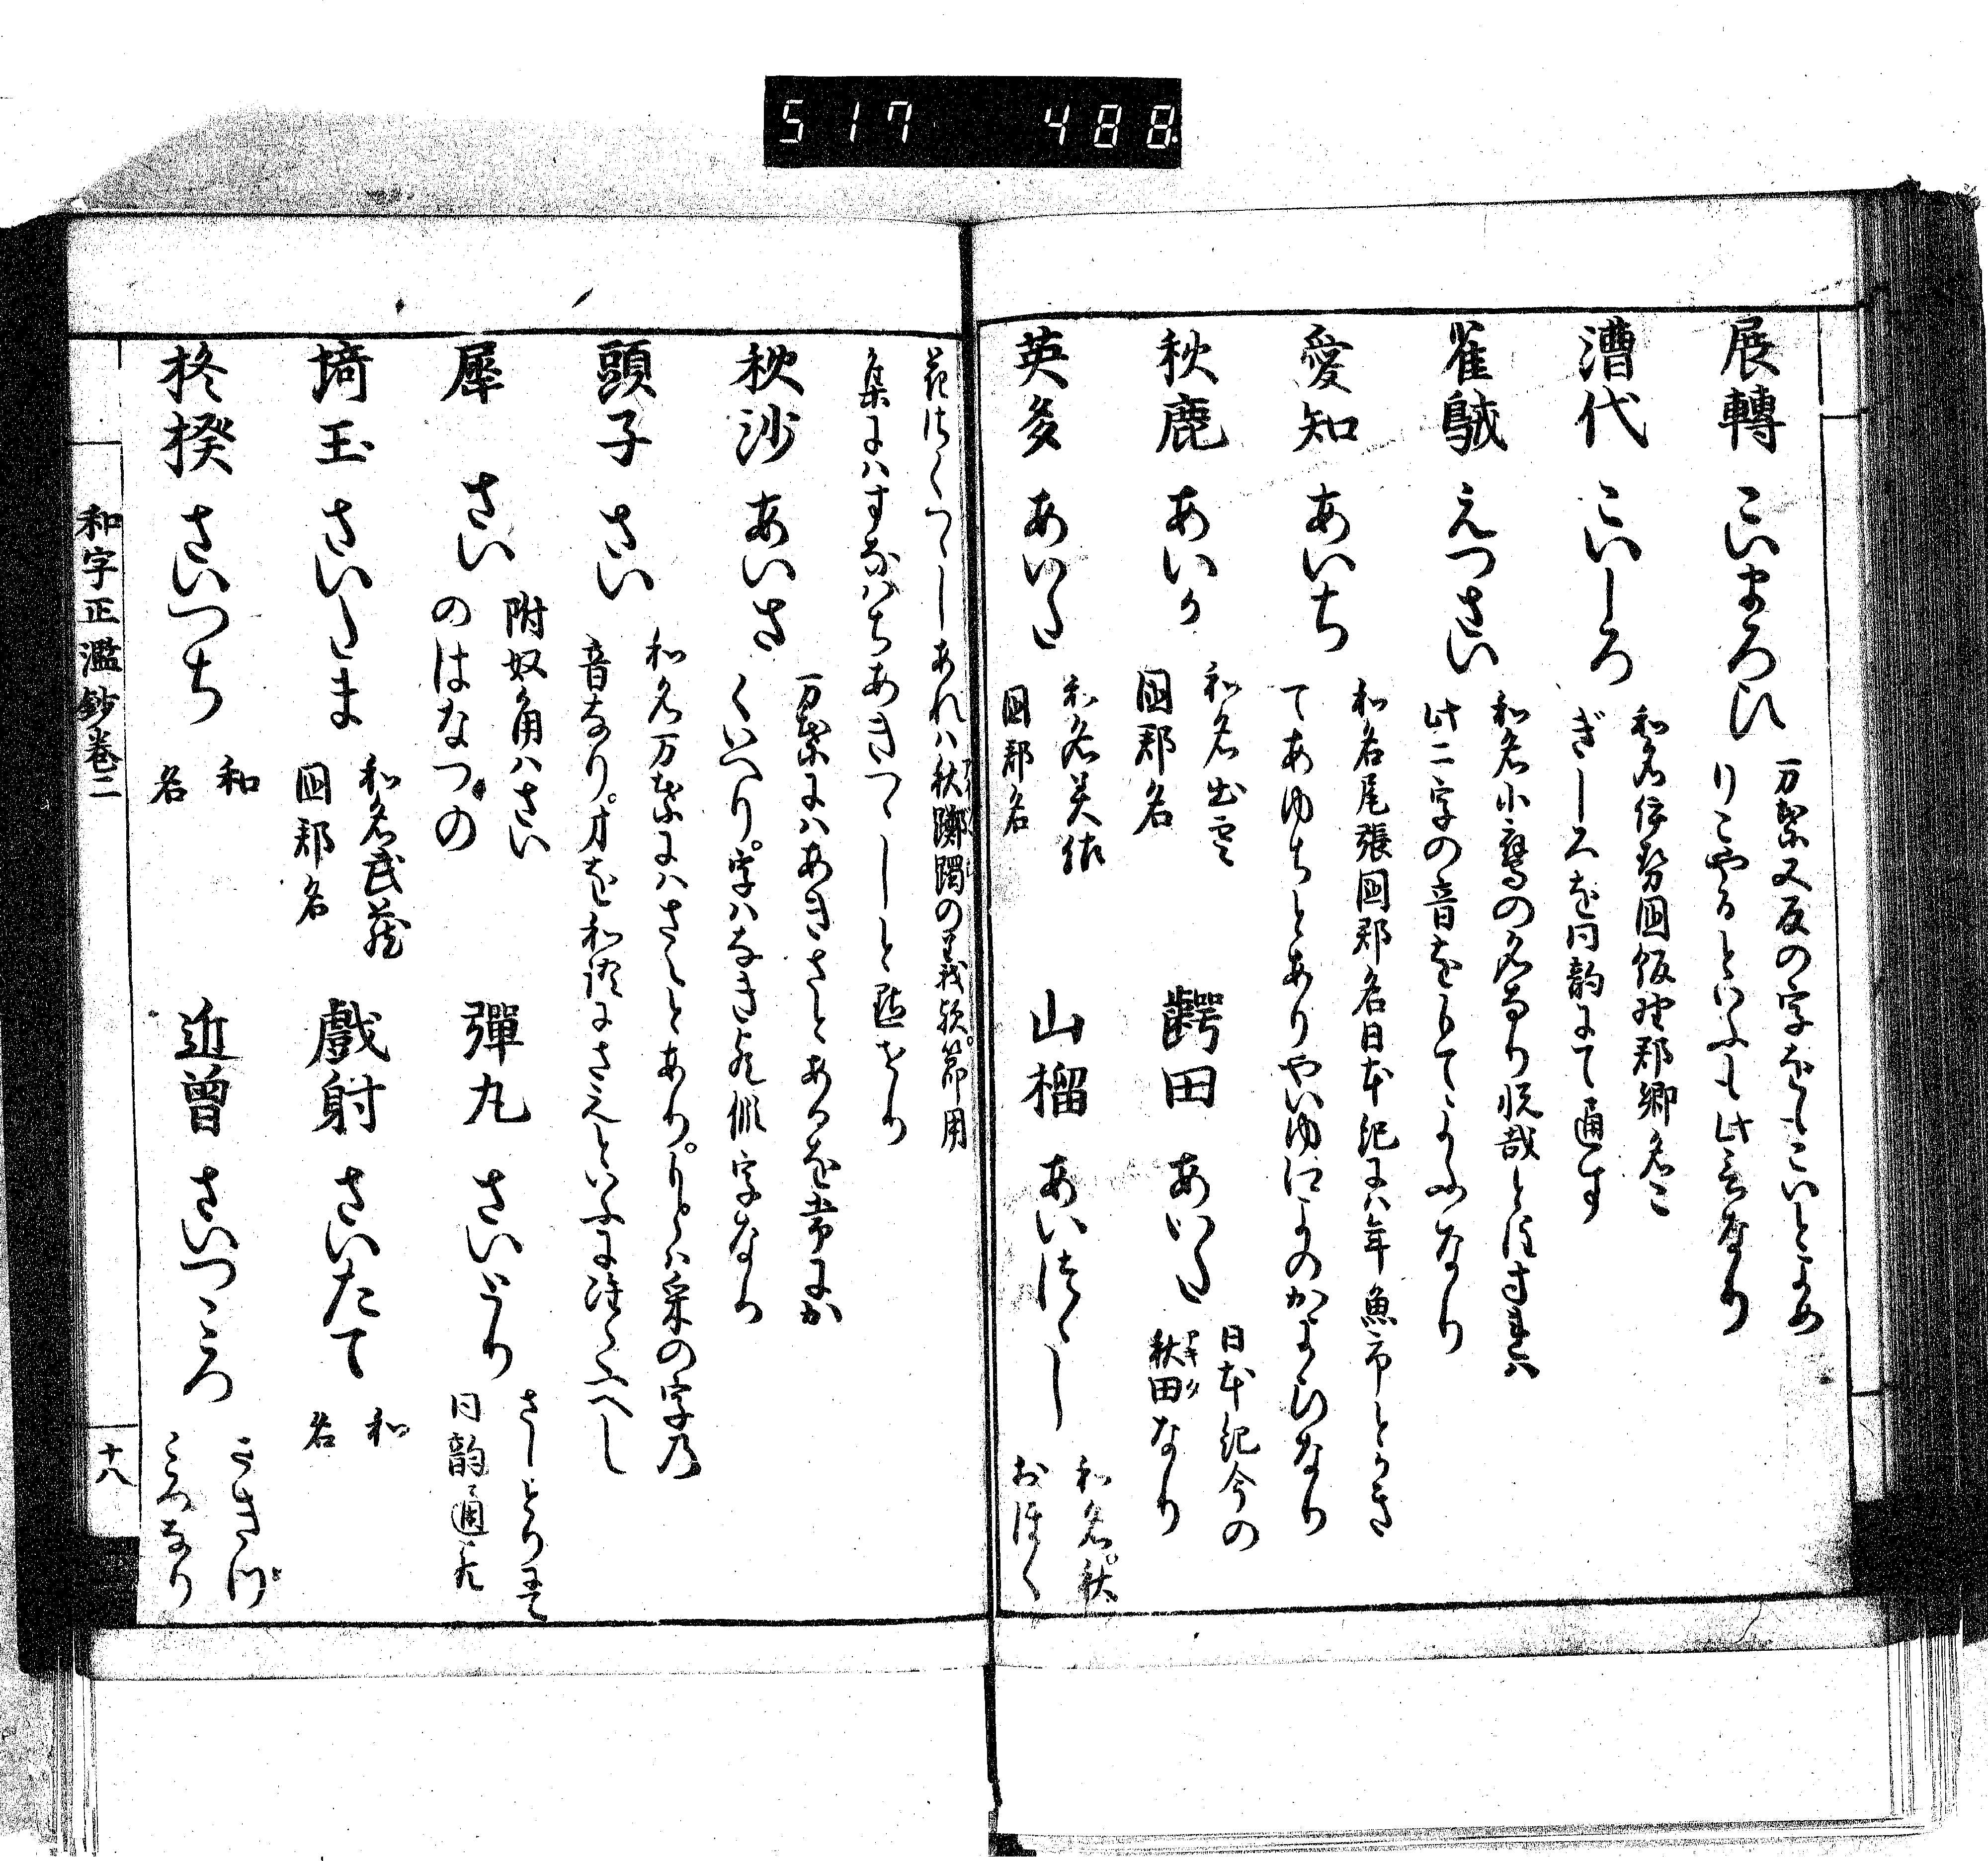 517 488
展轉 こいまろひ
万葉又反の字をもこいとよめ
りこやるといふも此言なり
漕代 こいしろ
和名伊勢國飯野郡郷名こ
ぎしろを同韵にて通す
雀𪀚 えつさい
和名小鷹の名なり悦哉と注すれは
此二字の音をもてよふなり
愛知 あいち
和名尾張國郡名日本紀には年魚市とかき
てあゆちとありやいゆえよのかよひなり
秋鹿 あいか
和名出雲
國郡名
齶田 あいた
日本紀今の
秋田なり
アキタ
英多 あいた
和名美作
國郡名
山榴 あいつゝし
和名秋
おほく
花さくつゝしあれは秋躑躅の義歟節用
集にはすなはちあきつゝしと点せり
秋沙 あいさ
万葉にはあきさとあるを常にか
くいへり字はなき故俗字なり
頭子 さい
和名万葉にはさえとあり
の字乃
音なり才を和語にさえといふに准ふへし
犀 さい
附奴角はさい
のはなつの
彈丸 さいとり
さしとりにて
同韵通せり
埼玉 さいたま
和名武蔵
國郡名
戯射 さいたて
和
名
柊揆 さいつち
和
名
近曽 さいつころ
さきつ
ころなり
和字正濫鈔巻二
十八